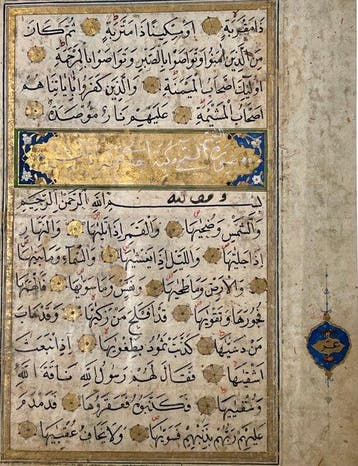 ذا مقربة او مسكينا ذا متربة ثم كان
من الذين امنوا وتواصوا بالصبر وتواصوا بالمرحمة
اولئك اصحاب الميمنة والذين كفروا باياتنا هم
اصحاب المشئمة عليهم نار موصدة
سورة
بسم الله الرحمن الرحيم
والشمس وضحيها والقمر اذا تليها والنهار
اذا جليها والليل اذا يغشيها والسماء وما بنيها
والارض وما طحيها ونفس وما سويها فالهمها
فجورها وتقويها قد افلح من زكيها وقد خاب
من دسيها كذبت ثمود بطغويها اذ انبعث
اشقيها فقال لهم رسول الله ناقة الله
وسقييها فكذبوه فعقروها فدمدم
عليهم ربهم بذنبهم فسويها ولا يخاف عقبيها